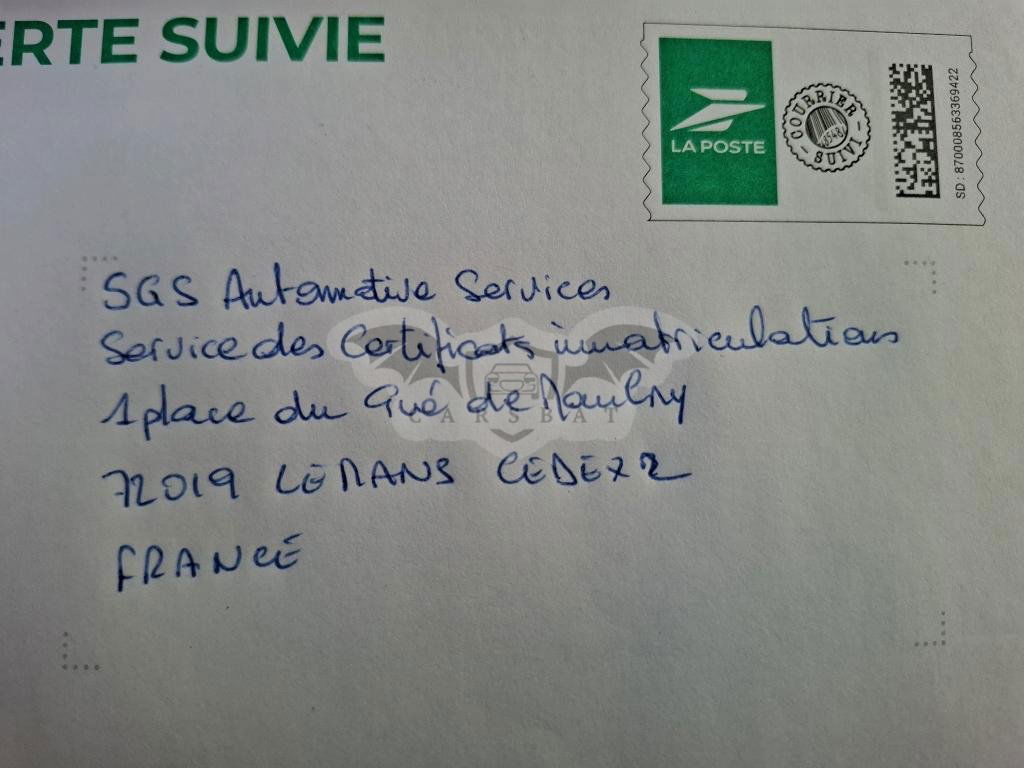 ERTE SUIVIE
LA POSTE
COURRIER
SUIVI
SD : 8700085633369422
SGS Automotive Services
Service des Certificats immatriculations
1 place du Gué de Maulny
CARSBAT
72019 LE MANS CEDEX 2
FRANCE